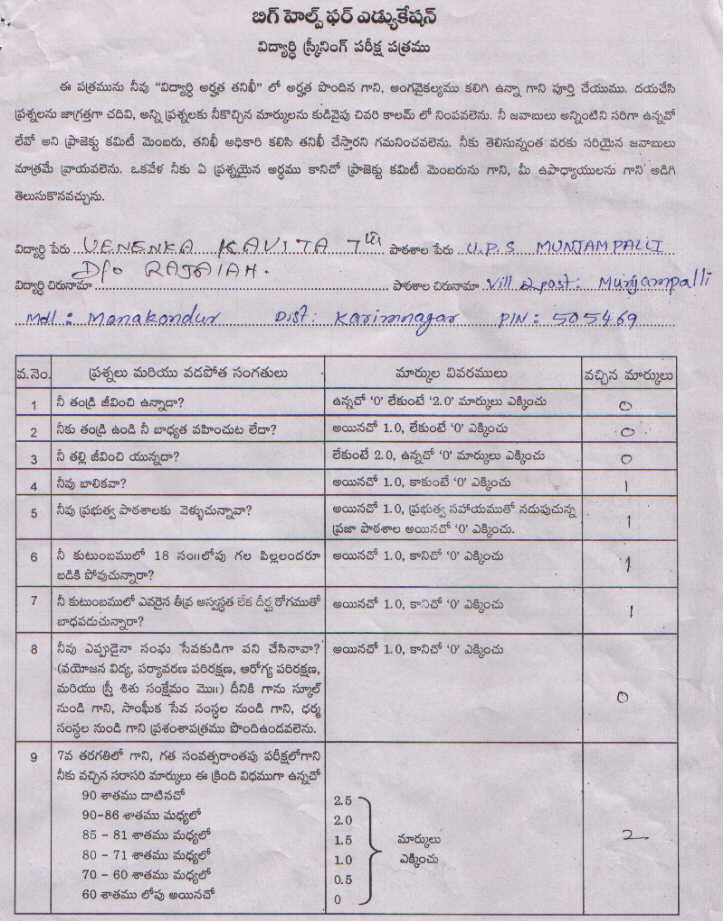 బిగ్ హెల్ప్ ఫర్ ఎడ్యుకేషన్
విద్యార్థి స్క్రీనింగ్ పరీక్ష పత్రము
ఈ పత్రమును నీవు "విద్యార్థి అర్హత తనిఖీ" లో అర్హత పొందిన గాని, అంగవైకల్యము కలిగి ఉన్నా గాని పూర్తి చేయుము. దయచేసి
ప్రశ్నలను జాగ్రత్తగా చదివి, అన్ని ప్రశ్నలకు నీకొచ్చిన మార్కులను కుడివైపు చివరి కాలమ్ లో నింపవలెను. నీ జవాబులు అన్నింటిని సరిగా ఉన్నవో
లేవో అని ప్రాజెక్టు కమిటీ మెంబరు, తనిఖీ అధికారి కలిసి తనిఖీ చేస్తారని గమనించవలెను. నీకు తెలిసున్నంత వరకు సరియైన జవాబులు
మాత్రమే వ్రాయవలెను. ఒకవేళ నీకు ఏ ప్రశ్నయైన అర్థము కానిచో ప్రాజెక్టు కమిటీ మెంబరును గాని, మీ ఉపాధ్యాయులను గాని అడిగి
తెలుసుకొనవచ్చును.
విద్యార్థి పేరు VENENKA KAVITA 7th పాఠశాల పేరు U.P.S MUNJAMPALLI
D/o RAJAIAH.
విద్యార్థి చిరునామా పాఠశాల చిరునామా Vill & post: Munjampalli
Mdl: Manakondur Dist: Karimnagar PIN: 505469
వ.నెం. ప్రశ్నలు మరియు వడపోత సంగతులు మార్కుల వివరములు వచ్చిన మార్కులు
1 నీ తండ్రి జీవించి ఉన్నాడా? ఉన్నచో '0' లేకుంటే '2.0' మార్కులు ఎక్కించు 0
2 నీకు తండ్రి ఉండి నీ బాధ్యత వహించుట లేదా? అయినచో 1.0, లేకుంటే '0' ఎక్కించు 0
3 నీ తల్లి జీవించి యున్నదా? లేకుంటే 2.0, ఉన్నచో '0' మార్కులు ఎక్కించు 0
4 నీవు బాలికవా? అయినచో 1.0, కాకుంటే '0' ఎక్కించు 1
5 నీవు ప్రభుత్వ పాఠశాలకు వెళ్ళుచున్నావా? అయినచో 1.0, ప్రభుత్వ సహాయముతో నడుపుచున్న
ప్రజా పాఠశాల అయినచో '0' ఎక్కించు. 1
6 నీ కుటుంబములో 18 సం॥లోపు గల పిల్లలందరూ అయినచో 1.0, కానిచో '0' ఎక్కించు 1
బడికి పోవుచున్నారా?
7 నీ కుటుంబములో ఎవరైన తీవ్ర అస్వస్థత లేక దీర్ఘ రోగముతో అయినచో 1.0, కానిచో '0' ఎక్కించు 1
బాధపడుచున్నారా?
8 నీవు ఎప్పుడైనా సంఘ సేవకుడిగా పని చేసినావా? అయినచో 1.0, కానిచో '0' ఎక్కించు
(వయోజన విద్య, పర్యావరణ పరిరక్షణ, ఆరోగ్య పరిరక్షణ,
మరియు స్త్రీ శిశు సంక్షేమం మొ॥) దీనికి గాను స్కూల్
నుండి గాని, సాంఘీక సేవ సంస్థల నుండి గాని, ధర్మ 0
సంస్థల నుండి గాని ప్రశంశాపత్రము పొందిఉండవలెను.
9 7వ తరగతిలో గాని, గత సంవత్సరాంతపు పరీక్షలోగాని
నీకు వచ్చిన సరాసరి మార్కులు ఈ క్రింది విధముగా ఉన్నచో
90 శాతము దాటినచో 2.5
90-86 శాతము మధ్యలో 2.0
85 - 81 శాతము మధ్యలో 1.5 మార్కులు 2
80 - 71 శాతము మధ్యలో 1.0 ఎక్కించు
70 - 60 శాతము మధ్యలో 0.5
60 శాతము లోపు అయినచో 0